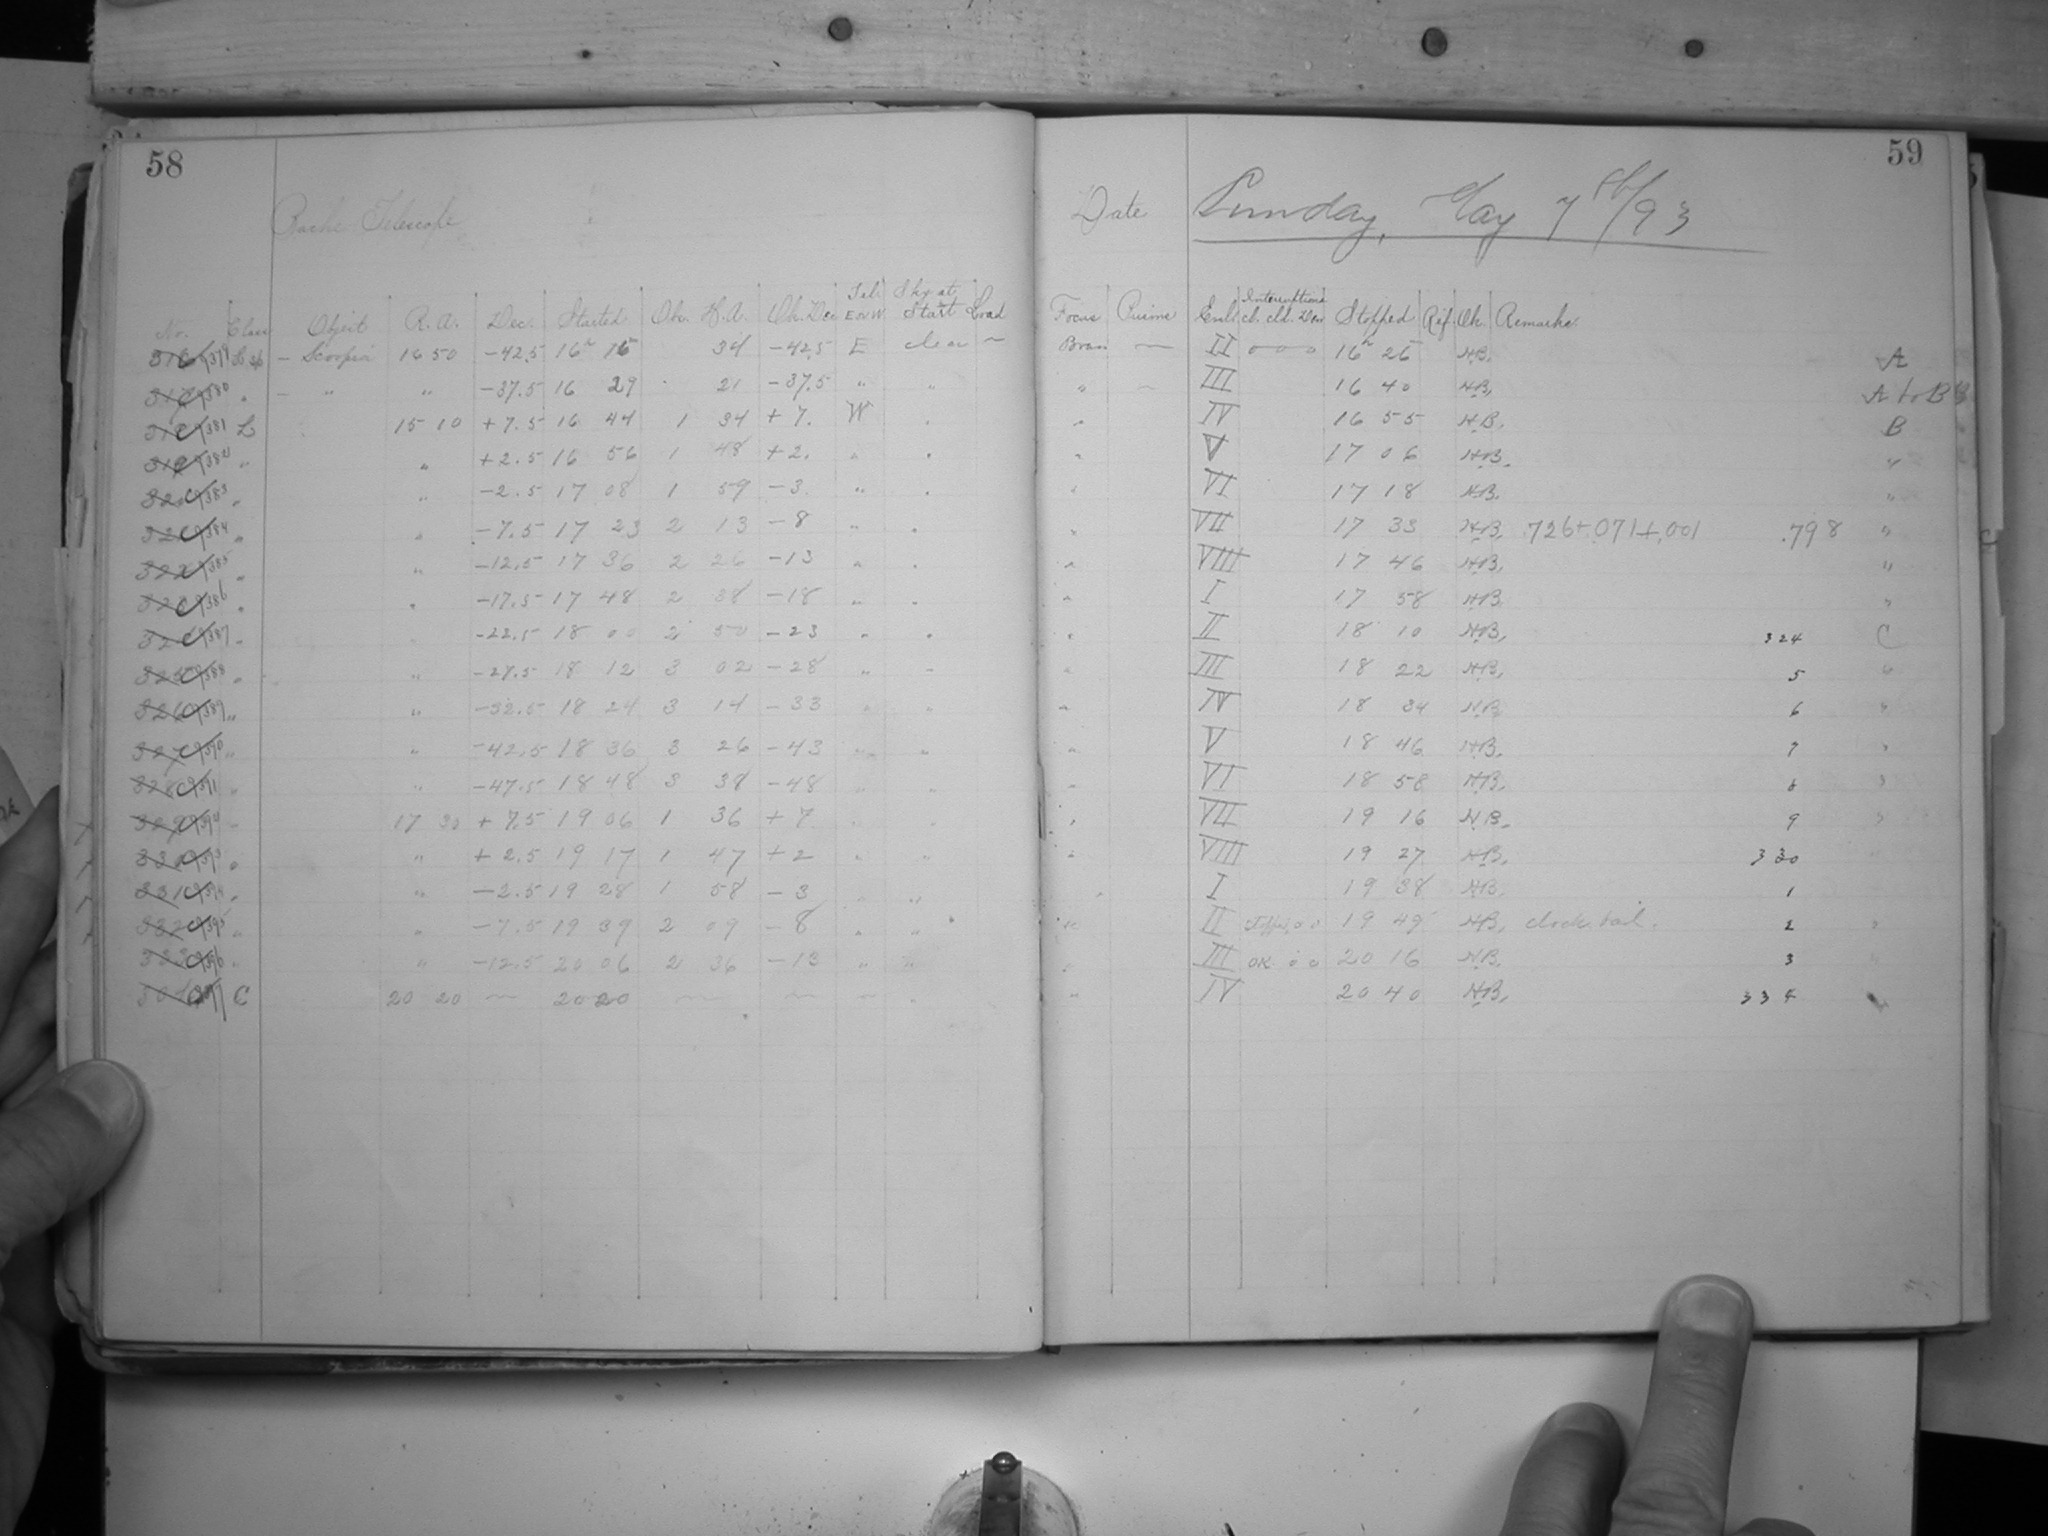 58
59
Bache Telescope
Date Sunday, May 7th/93
No. Class Object R.A. Dec. Started Ob. H.A. Ob. Dec Tel. E or W Sky at Start Load Focus Prisms Encl. Interruptions cl. cld. Dew Stopped Ref. Ob. Remarks
316 - Scorpii 16 50 -42.5 16h 15 34 -42.5 E clear ~ ~ II o o o 16h 25 H.B. A
317 " - " " -37.5 16 29 21 -37.5 " " " ~ III 16 40 H.B. A to B
381 L 15 10 +7.5 16 44 1 34 +7. W " " IV 16 55 H.B. B
" " +2.5 16 56 1 48 +2. " " " V 17 06 H.B. "
383 " " -2.5 17 08 1 59 -3 " " " VI 17 18 H.B. "
384 " " -7.5 17 23 2 13 -8 " " " VII 17 33 H.B. .726+.071+.001 .798 "
385 " " -12.5 17 36 2 26 -13 " " " VIII 17 46 H.B. "
386 " " -17.5 17 48 2 38 -18 " " " I 17 58 H.B. "
387 " -22.5 18 00 2 50 -23 " " " II 18 10 H.B. 324 C
388 " " -27.5 18 12 3 02 -28 " " " III 18 22 H.B. 5 "
326 389 " " -32.5 18 24 3 14 -33 " " " IV 18 34 H.B. 6 "
327 " " -42.5 18 36 3 26 -43 " " " V 18 46 H.B. 7 "
328 " " -47.5 18 48 3 38 -48 " " " VI 18 58 H.B. 8 "
329 " 17 30 +7.5 19 06 1 36 +7 " " " VII 19 16 H.B. 9 "
330 " " +2.5 19 17 1 47 +2 " " " VIII 19 27 H.B. 330 "
331 " " -2.5 19 28 1 58 -3 " " " I 19 38 H.B. 1
332 395 " " -7.5 19 39 2 09 -8 " " " II stopped o o 19 49 H.B. clock 2 "
333 " " -12.5 20 06 2 36 -13 " " " III OK o o 20 16 H.B. 3 "
C 20 20 ~ 20 20 ~ ~ ~ " " IV 20 40 H.B. 334 "